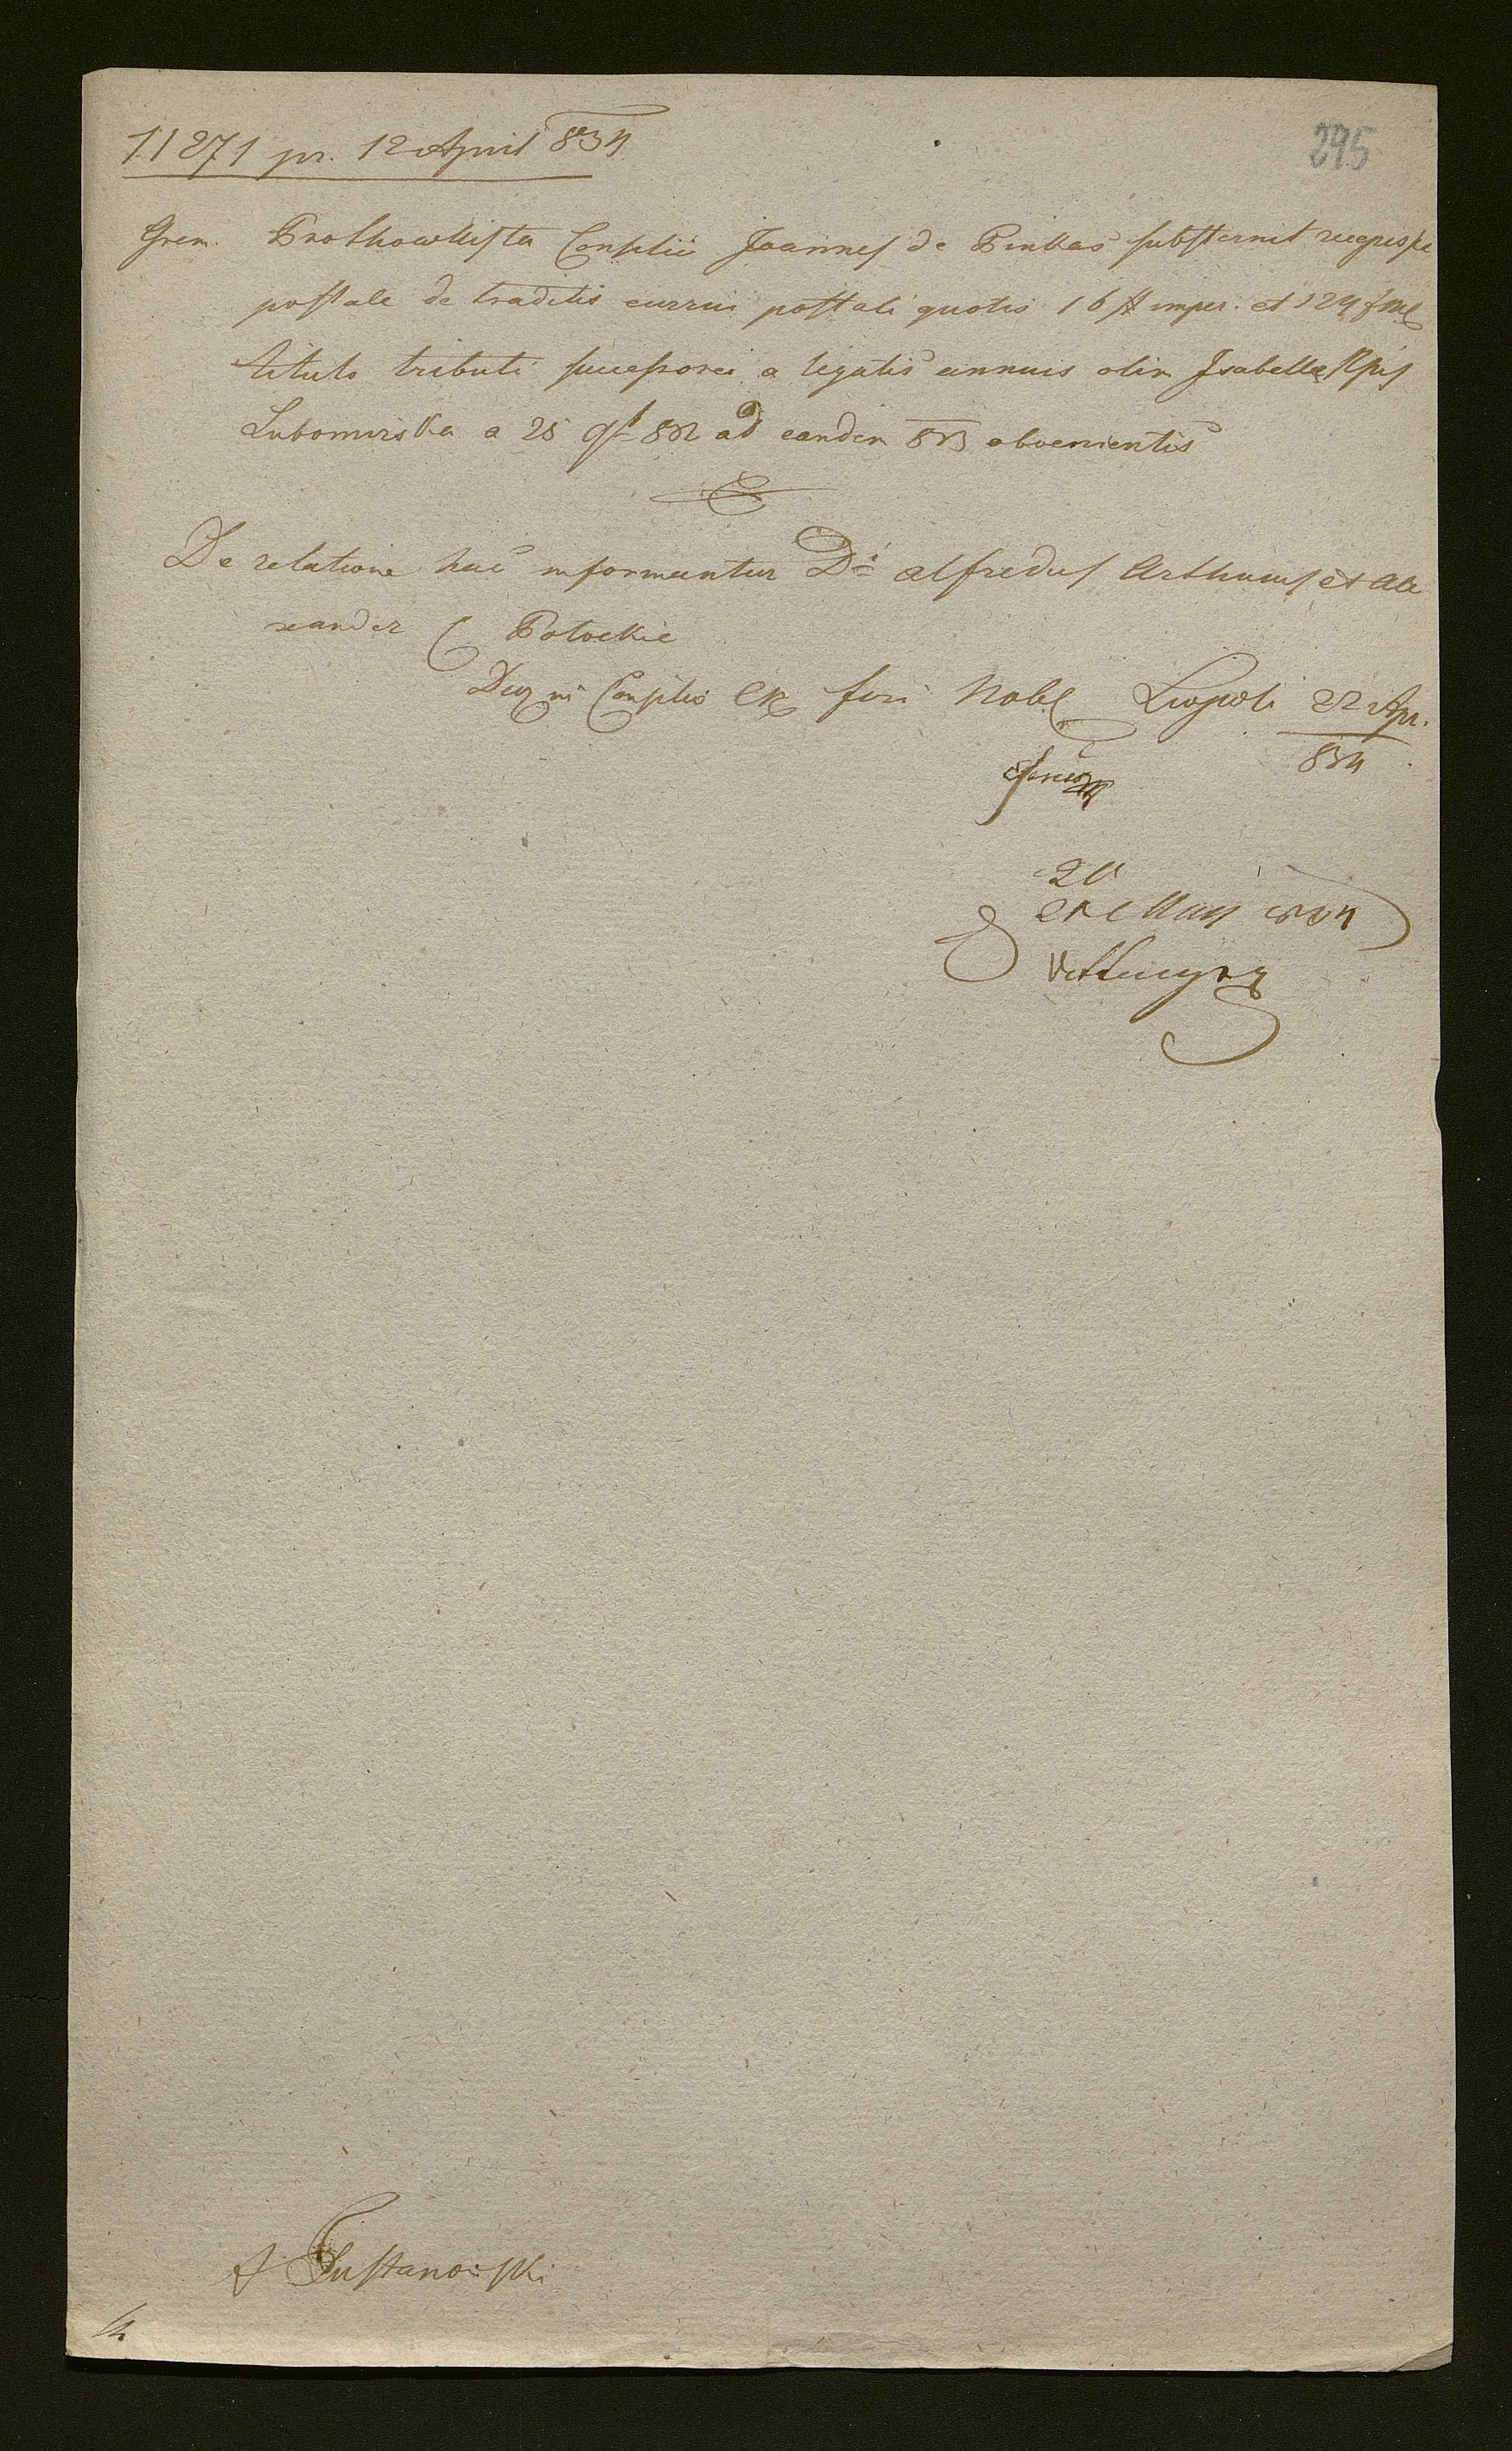 11271 pr. 12 April 834
295
Grem. Prothocollista Consilii Joannes de Pinkas substernit recepisse
postale de traditis currui postali quotis 16 # imper. et 124 f
titulo tributi successorei a legatis annuis olim Isabellae Ppis
Lubomirska a 25 9br 832 ad eandem 833 obvenientis
De relatione hac informantur Di Alfredus Arthurus et Ale
xander Potockie
Consilio CR fori Nobil Leopoli 22 Apr.
834
20
Maij 834
A Pustanowski